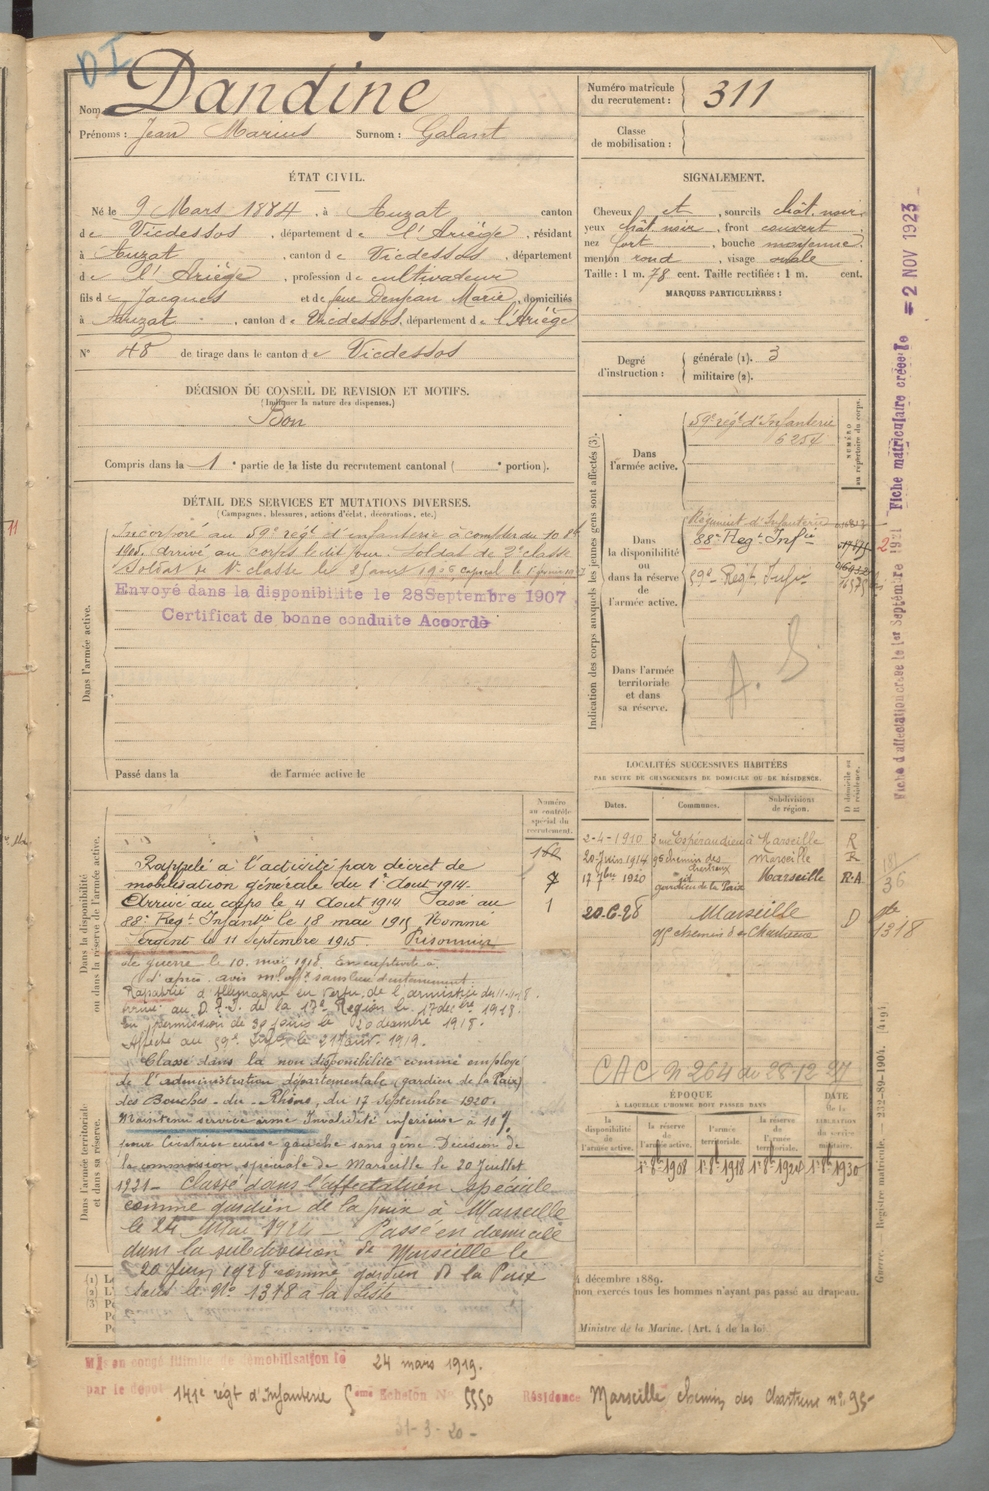 DI
Nom Dandine
Prénoms : Jean Marius Surnom : Galant
Numéro matricule du recrutement : 311
Classe de mobilisation :
ÉTAT CIVIL.
Né le 9 Mars 1884, à Auzat canton
de Vicdessos, département de l'Ariège, résidant
à Auzat, canton de Vicdessos, département
de l'Ariège, profession de cultivateur
fils de Jacques et de feue Denjean Marie, domiciliés
à Auzat, canton de Vicdessos, département de l'Ariège
N° 48 de tirage dans le canton de Vicdessos
SIGNALEMENT.
Cheveux et, sourcils chât. noir
yeux chât. noir, front couvert
nez fort, bouche moyenne
menton rond, visage ovale
Taille : 1 m. 78 cent. Taille rectifiée : 1 m. cent.
MARQUES PARTICULIÈRES :
Degré d'instruction : générale (1). 3
militaire (2).
DÉCISION DU CONSEIL DE REVISION ET MOTIFS.
(Indiquer la nature des dispenses.)
Bon
Compris dans la 1e partie de la liste du recrutement cantonal ( e portion).
DÉTAIL DES SERVICES ET MUTATIONS DIVERSES.
(Campagnes, blessures, actions d'éclat, décorations, etc.)
Dans l'armée active.
Incorporé au 59e régt d'infanterie à compter du 10 8bre
1905. arrivé au corps le dit jour. Soldat de 2e classe
Soldat de 1e classe le 1906, caporal le
Envoyé dans la disponibilité le 28 Septembre 1907
Certificat de bonne conduite Accordé
Passé dans la de l'armée active le
Indication des corps auxquels les jeunes gens sont affectés (3).
NUMÉRO au répertoire du corps.
Dans l'armée active.
59e régt d'Infanterie
6254
Dans la disponibilité ou dans la réserve de l'armée active.
Régiment d'Infanterie
88e Regt Infie
59e Regt Infie
Dans l'armée territoriale et dans sa réserve.
A. S.
LOCALITÉS SUCCESSIVES HABITÉES
PAR SUITE DE CHANGEMENTS DE DOMICILE OU DE RÉSIDENCE.
Dates. Communes. Subdivisions de région. D domicile ou R résidence.
2-4-1910 3 rue Espéraudieu à Marseille R
20 Juin 1914 95 chemin des Chartreux Marseille R
17 7bre 1920 id gardien de la Paix Marseille R.A
20-6-28 Marseille D
95 chemin des Chartreux
CAC N 264 du 28-12-27
Dans la disponibilité ou dans la réserve de l'armée active.
Numéro au contrôle spécial du recrutement.
160
7
1
Rappelé à l'activité par décret de
mobilisation générale du 1e Aout 1914.
Arrivé au corps le 4 Aout 1914 Passé au
88e Regt Infantie le 18 mai 1915 Nommé
Sergent le 11 septembre 1915. Prisonnier
de guerre le 10. mai 1918.
d'après avis sans lieu d'internement.
Rapatrié d'Allemagne en vertu de l'armistice du 11-11-18.
arrivé au D. de la 17e Région le 17 decbre 1918.
En permission de 30 jours le 20 decembre 1918.
Affecté au 59e Infie le 21 Janv. 1919.
Classé dans la non disponibilité comme employé
de l'administration départementale (gardien de la Paix)
des Bouches-du-Rhône, du 17 Septembre 1920.
Maintenu service armé Invalidité inférieure à 10 %
pour Cicatrice cuisse gauche sans gêne Décision de
la commission spéciale de Marseille le 20 Juillet
1921 - Classé dans l'affectation spéciale
comme gardien de la paix à Marseille
le 24 Mai 1924 - Passé en domicile
dans la subdivision de Marseille le
20 Juin 1928 comme gardien de la Paix
sous le No 1318 a la Liste
Dans l'armée territoriale et dans sa réserve.
ÉPOQUE
À LAQUELLE L'HOMME DOIT PASSER DANS
la disponibilité de l'armée active. la réserve de l'armée active. l'armée territoriale. la réserve de l'armée territoriale. DATE de la LIBÉRATION du service militaire.
1er 8bre 1908 1er 8bre 1918 1er 8bre 1924 1er 8bre 1930
4 décembre 1889.
non exercés tous les hommes n'ayant pas passé au drapeau.
Ministre de la Marine. (Art. 4 de la loi)
Guerre. Registre matricule. 232-89-1904. (419)
Fiche d'affectation créée le 1er Septembre 1921 Fiche matriculaire créée le = 2 NOV 1923
2
181
36
No
1318
Mis en congé illimité de démobilisation le 24 mars 1919.
par le dépôt 141e régt d'Infanterie 5eme Echelon No 5550 Résidence Marseille chemin des Chartreux no 95
31-3-20-